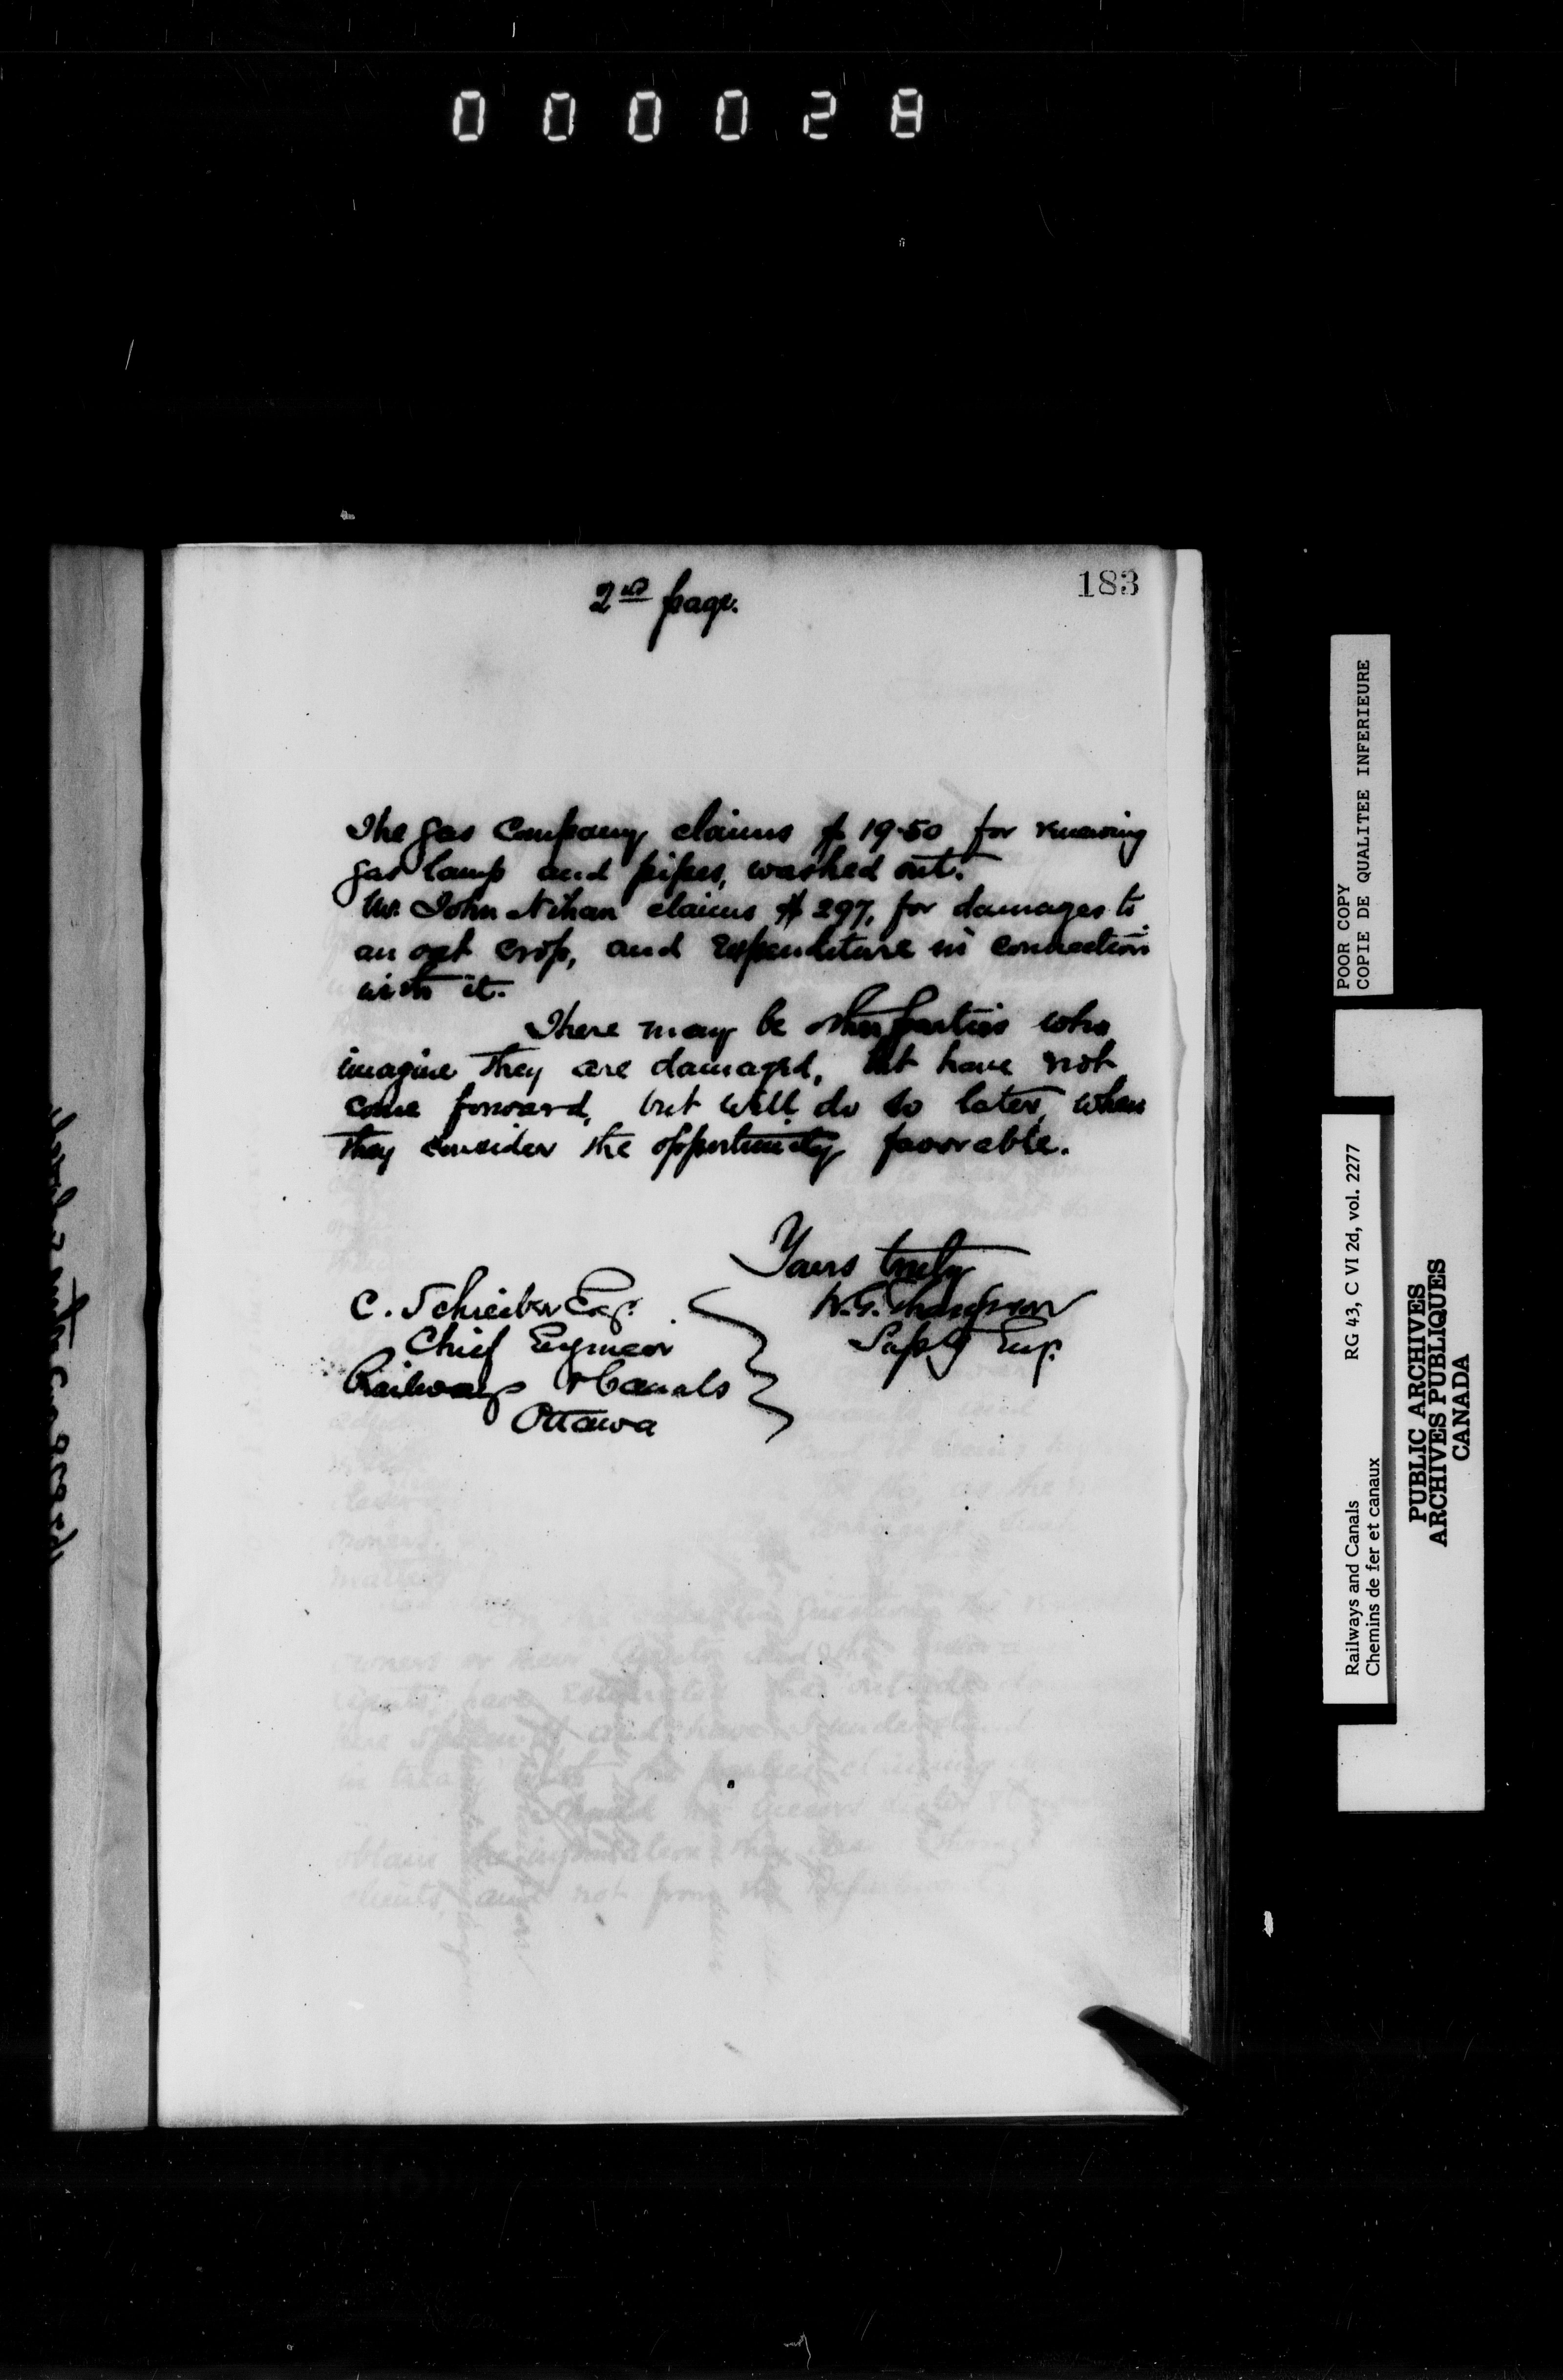 000028
183
2nd page.
The Gas Company claims $19.50 for renewing
gas lamp and pipes, washed out.
Mr. John Nihan claims $297, for damages to
an oat crop, and expenditure in connection
with it.
There may be other parties who
imagine they are damaged, but have not
come forward, but will do so later, when
they consider the opportunity favorable.
Yours truly
W.G. Thompson
Supt'g Eng.
C. Schreiber Esq.
Chief Engineer
Railways & Canals
Ottawa
POOR COPY
COPIE DE QUALITEE INFERIEURE
Railways and Canals RG 43, C VI 2d, vol. 2277
Chemins de fer et canaux
PUBLIC ARCHIVES
ARCHIVES PUBLIQUES
CANADA